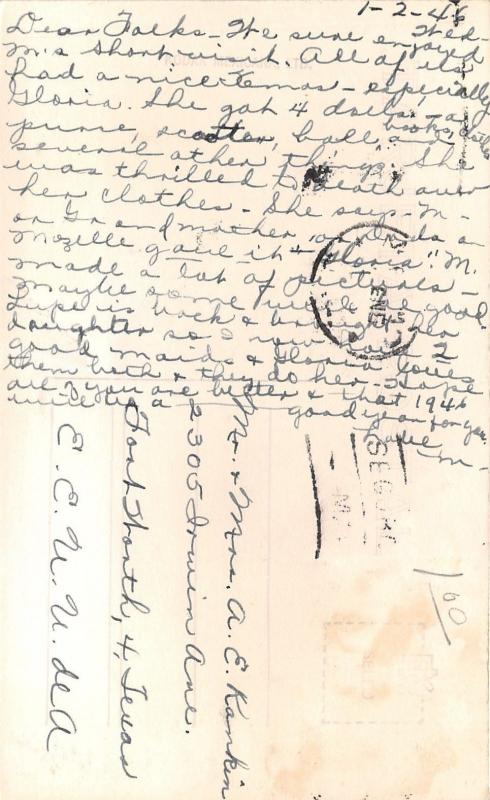 1-2-46
Dear Folks - We sure enjoyed Wed-
M.'s short visit. All of us
had a nice Xmas - especially
Gloria. She got 4 dolls, a
purse, scooter, ball, books, and
several other things. She
was thrilled to death over
her clothes - She says - M -
or Grandmother, or Dada or
Mozelle gave it to Gloria". M.
made a lot of pictures -
maybe some will be good.
Lupe is back & brought her
daughter so I now have 2
good maids & Gloria loves
them both & they do her - Hope
all of you are better & that 1946
will be a good year for you
Love M-
Mr. & Mrs. A. E. Rankin
2305 Irwin Ave.
Fort Worth, 4, Texas
E. E. U. U. de A
ENE
SEGURO
1/60